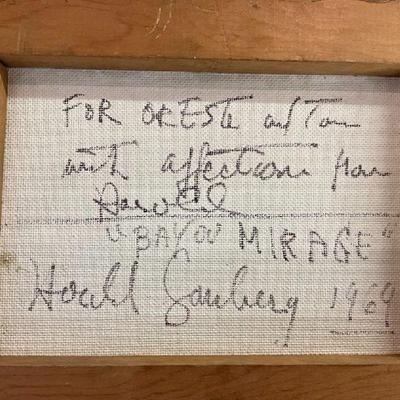 FOR ORESTE and Tom
with affection from
Harold
"BAYOU MIRAGE"
Harold 1969